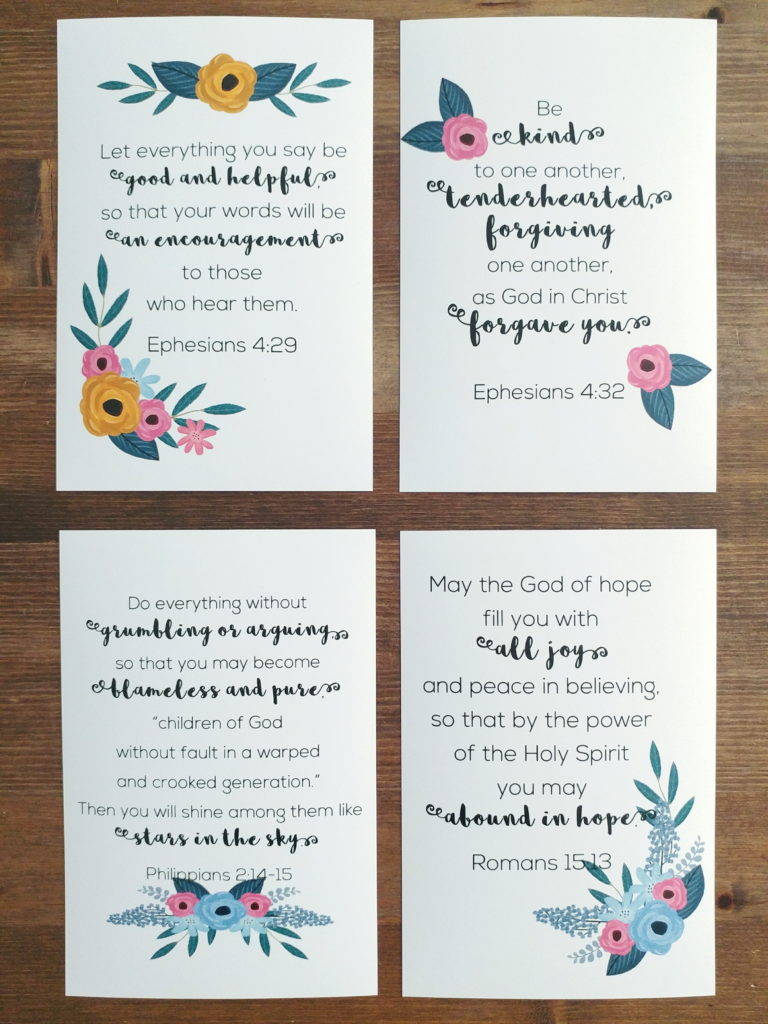 Let everything you say be
good and helpful,
so that your words will be
an encouragement
to those
who hear them.
Ephesians 4:29
Be
kind
to one another,
tenderhearted,
forgiving
one another,
as God in Christ
forgave you.
Ephesians 4:32
Do everything without
grumbling or arguing
so that you may become
blameless and pure,
"children of God
without fault in a warped
and crooked generation."
Then you will shine among them like
stars in the sky
Philippians 2:14-15
May the God of hope
fill you with
all joy
and peace in believing,
so that by the power
of the Holy Spirit
you may
abound in hope.
Romans 15:13